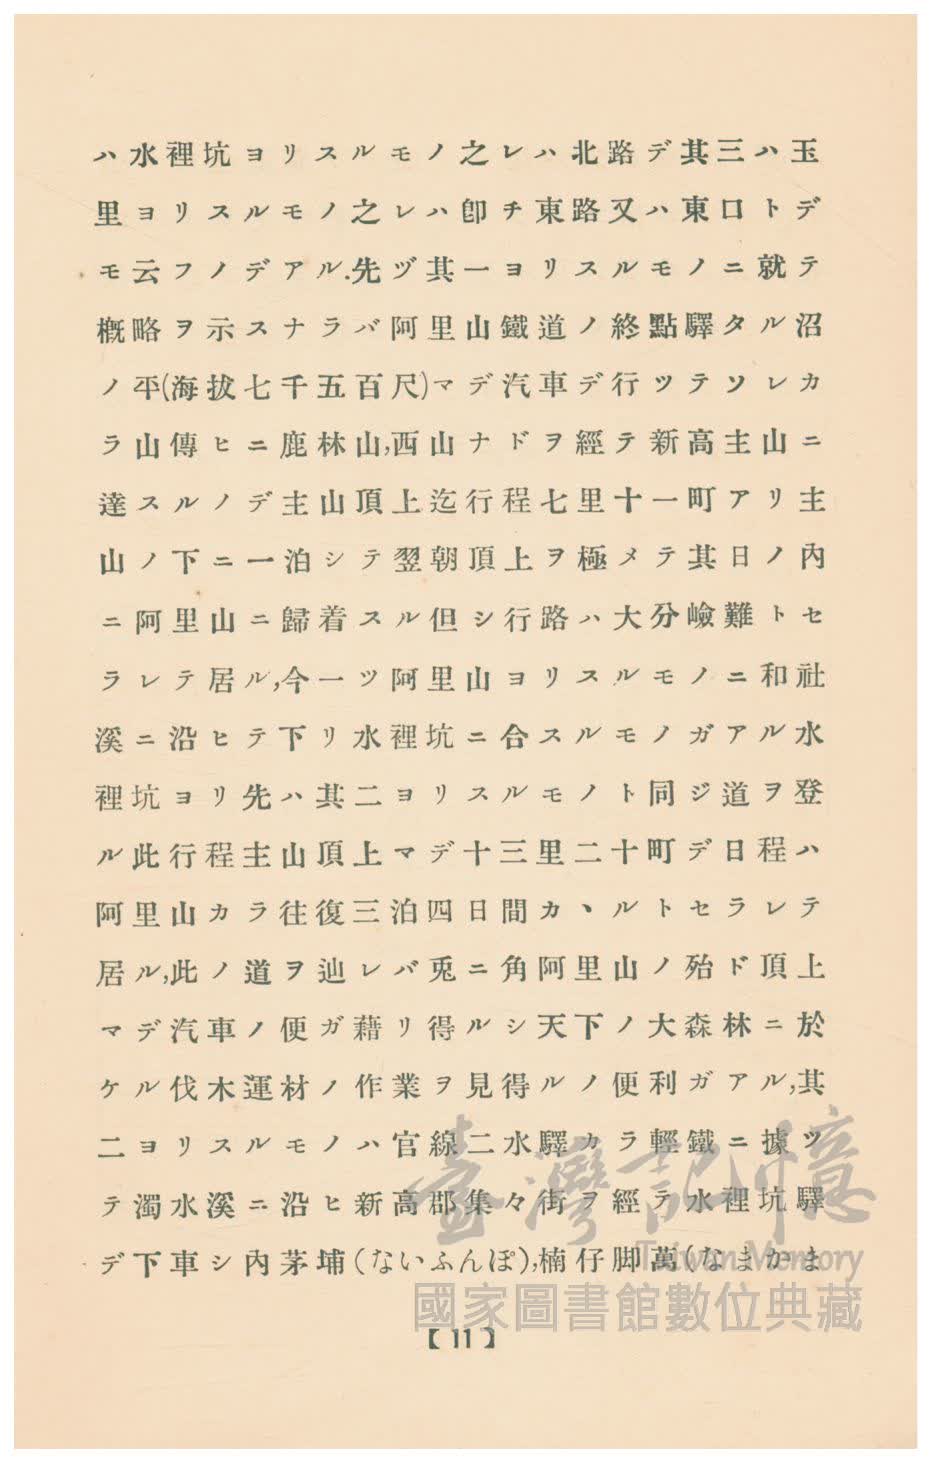 ハ水裡坑ヨリスルモノ之レハ北路デ其三ハ玉
里ヨリスルモノ之レハ卽チ東路又ハ東口トデ
モ云フノデアル.先ヅ其一ヨリスルモノニ就テ
槪略ヲ示スナラバ阿里山鐵道ノ終點驛タル沼
ノ平(海拔七千五百尺)マデ汽車デ行ツテソレカ
ラ山傳ヒニ鹿林山,西山ナドヲ經テ新高主山ニ
達スルノデ主山頂上迄行程七里十一町アリ主
山ノ下ニ一泊シテ翌朝頂上ヲ極メテ其日ノ內
ニ阿里山ニ歸着スル但シ行路ハ大分嶮難トセ
ラレテ居ル,今一ツ阿里山ヨリスルモノニ和社
溪ニ沿ヒテ下リ水裡坑ニ合スルモノガアル水
裡坑ヨリ先ハ其二ヨリスルモノト同ジ道ヲ登
ル此行程主山頂上マデ十三里二十町デ日程ハ
阿里山カラ往復三泊四日間カヽルトセラレテ
居ル,此ノ道ヲ辿レバ兎ニ角阿里山ノ殆ド頂上
マデ汽車ノ便ガ藉リ得ルシ天下ノ大森林ニ於
ケル伐木運材ノ作業ヲ見得ルノ便利ガアル,其
二ヨリスルモノハ官線二水驛カラ輕鐵ニ據ツ
テ濁水溪ニ沿ヒ新高郡集々街ヲ經テ水裡坑驛
デ下車シ內茅埔(ないふんぽ),楠仔脚萬(なまかま
【11】
臺灣記憶
Taiwan Memory
國家圖書館數位典藏